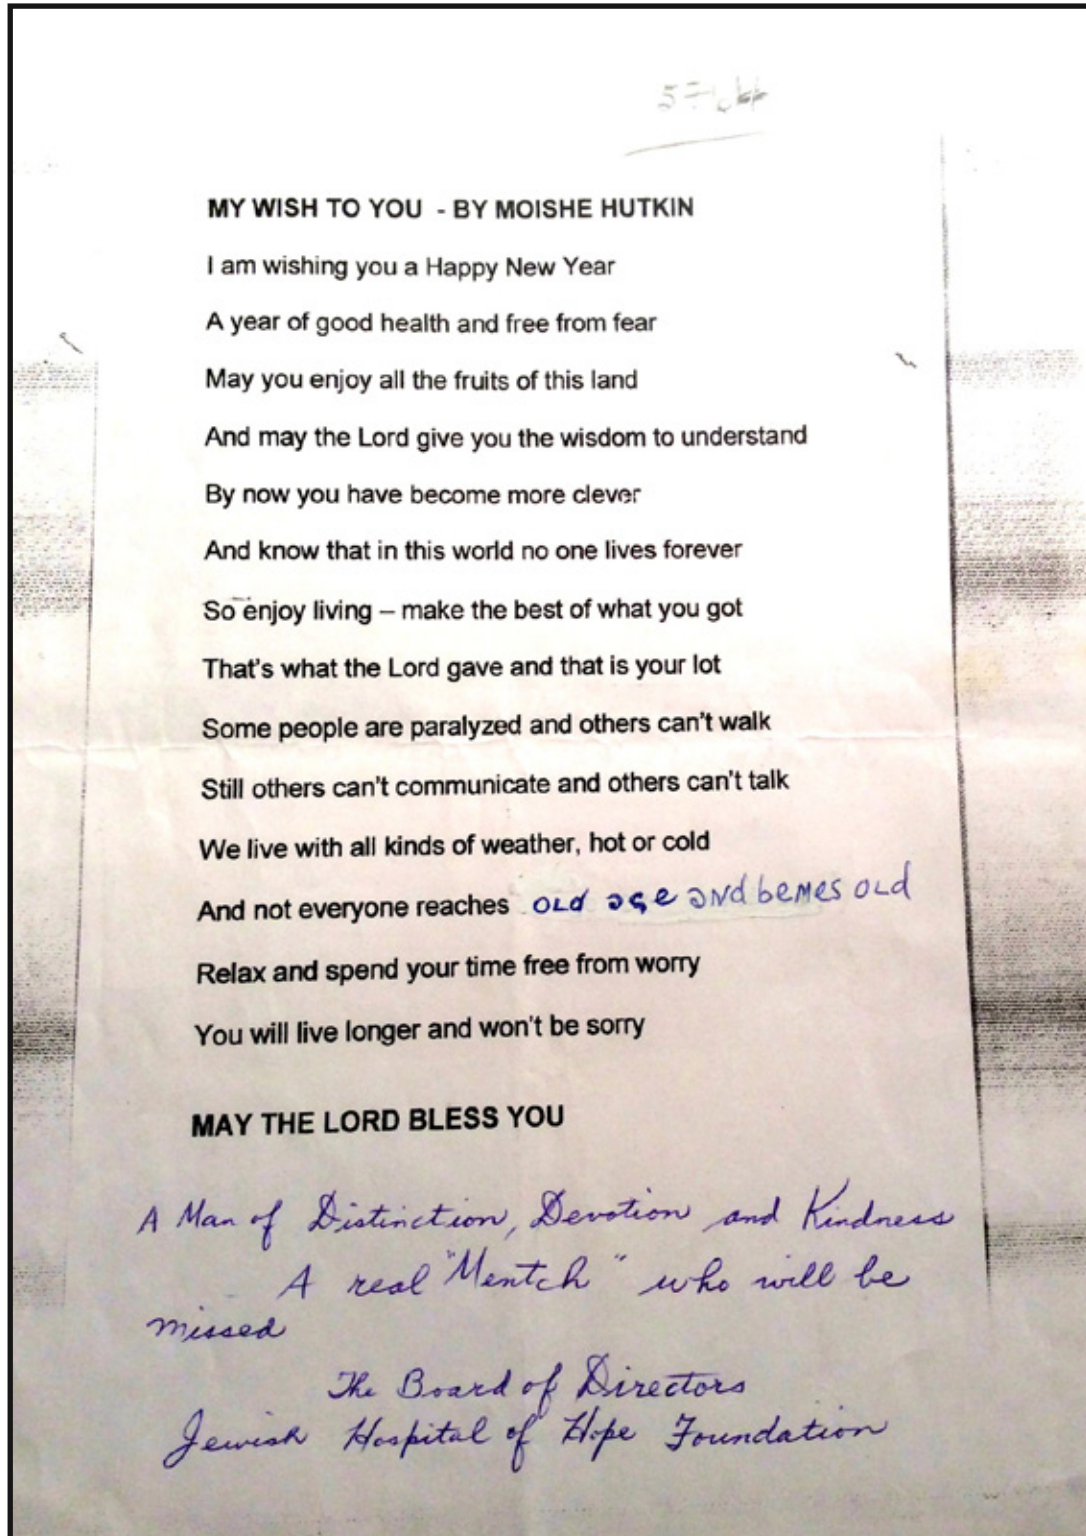 MY WISH TO YOU - BY MOISHE HUTKIN
I am wishing you a Happy New Year
A year of good health and free from fear
May you enjoy all the fruits of this land
And may the Lord give you the wisdom to understand
By now you have become more clever
And know that in this world no one lives forever
So enjoy living – make the best of what you got
That's what the Lord gave and that is your lot
Some people are paralyzed and others can't walk
Still others can't communicate and others can't talk
We live with all kinds of weather, hot or cold
And not everyone reaches OLd age and bemes OLd
Relax and spend your time free from worry
You will live longer and won't be sorry
MAY THE LORD BLESS YOU
A Man of Distinction, Devotion and Kindness
A real "Mentch" who will be
missed
The Board of Directors
Jewish Hospital of Hope Foundation